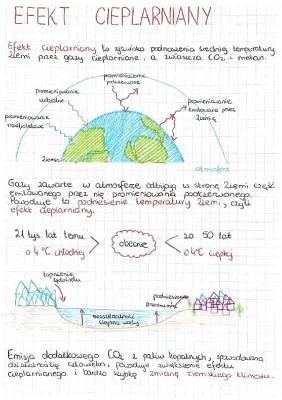 EFEKT CIEPLARNIANY
Efekt cieplarniany to zjawisko podnoszenia średniej temperatury
Ziemi przez gazy cieplarniane, a zwłaszcza CO₂ i metan.
promieniowanie
podczerwone
promieniowanie
widzialne
promieniowanie
emitowane przez
Ziemię
promieniowanie
nadfioletowe
Ziemia
atmosfera
Gazy zawarte w atmosferze odbijają w stronę Ziemi część
emitowanego przez nią promieniowania podczerwonego.
Powoduje to podniesienie temperatury Ziemi, czyli
efekt cieplarniany.
21 tys. lat temu
o 4°C chłodniej
obecnie
za 50 lat
o 4°C cieplej
topnienie
lądolodu
podniesienie
poziomu
rozszerzalność
cieplna wody
Emisja dodatkowego CO₂ z paliw kopalnych, spowodowana
działalnością człowieka, powoduje zwiększenie efektu
cieplarnianego i bardzo szybką zmianę ziemskiego klimatu.